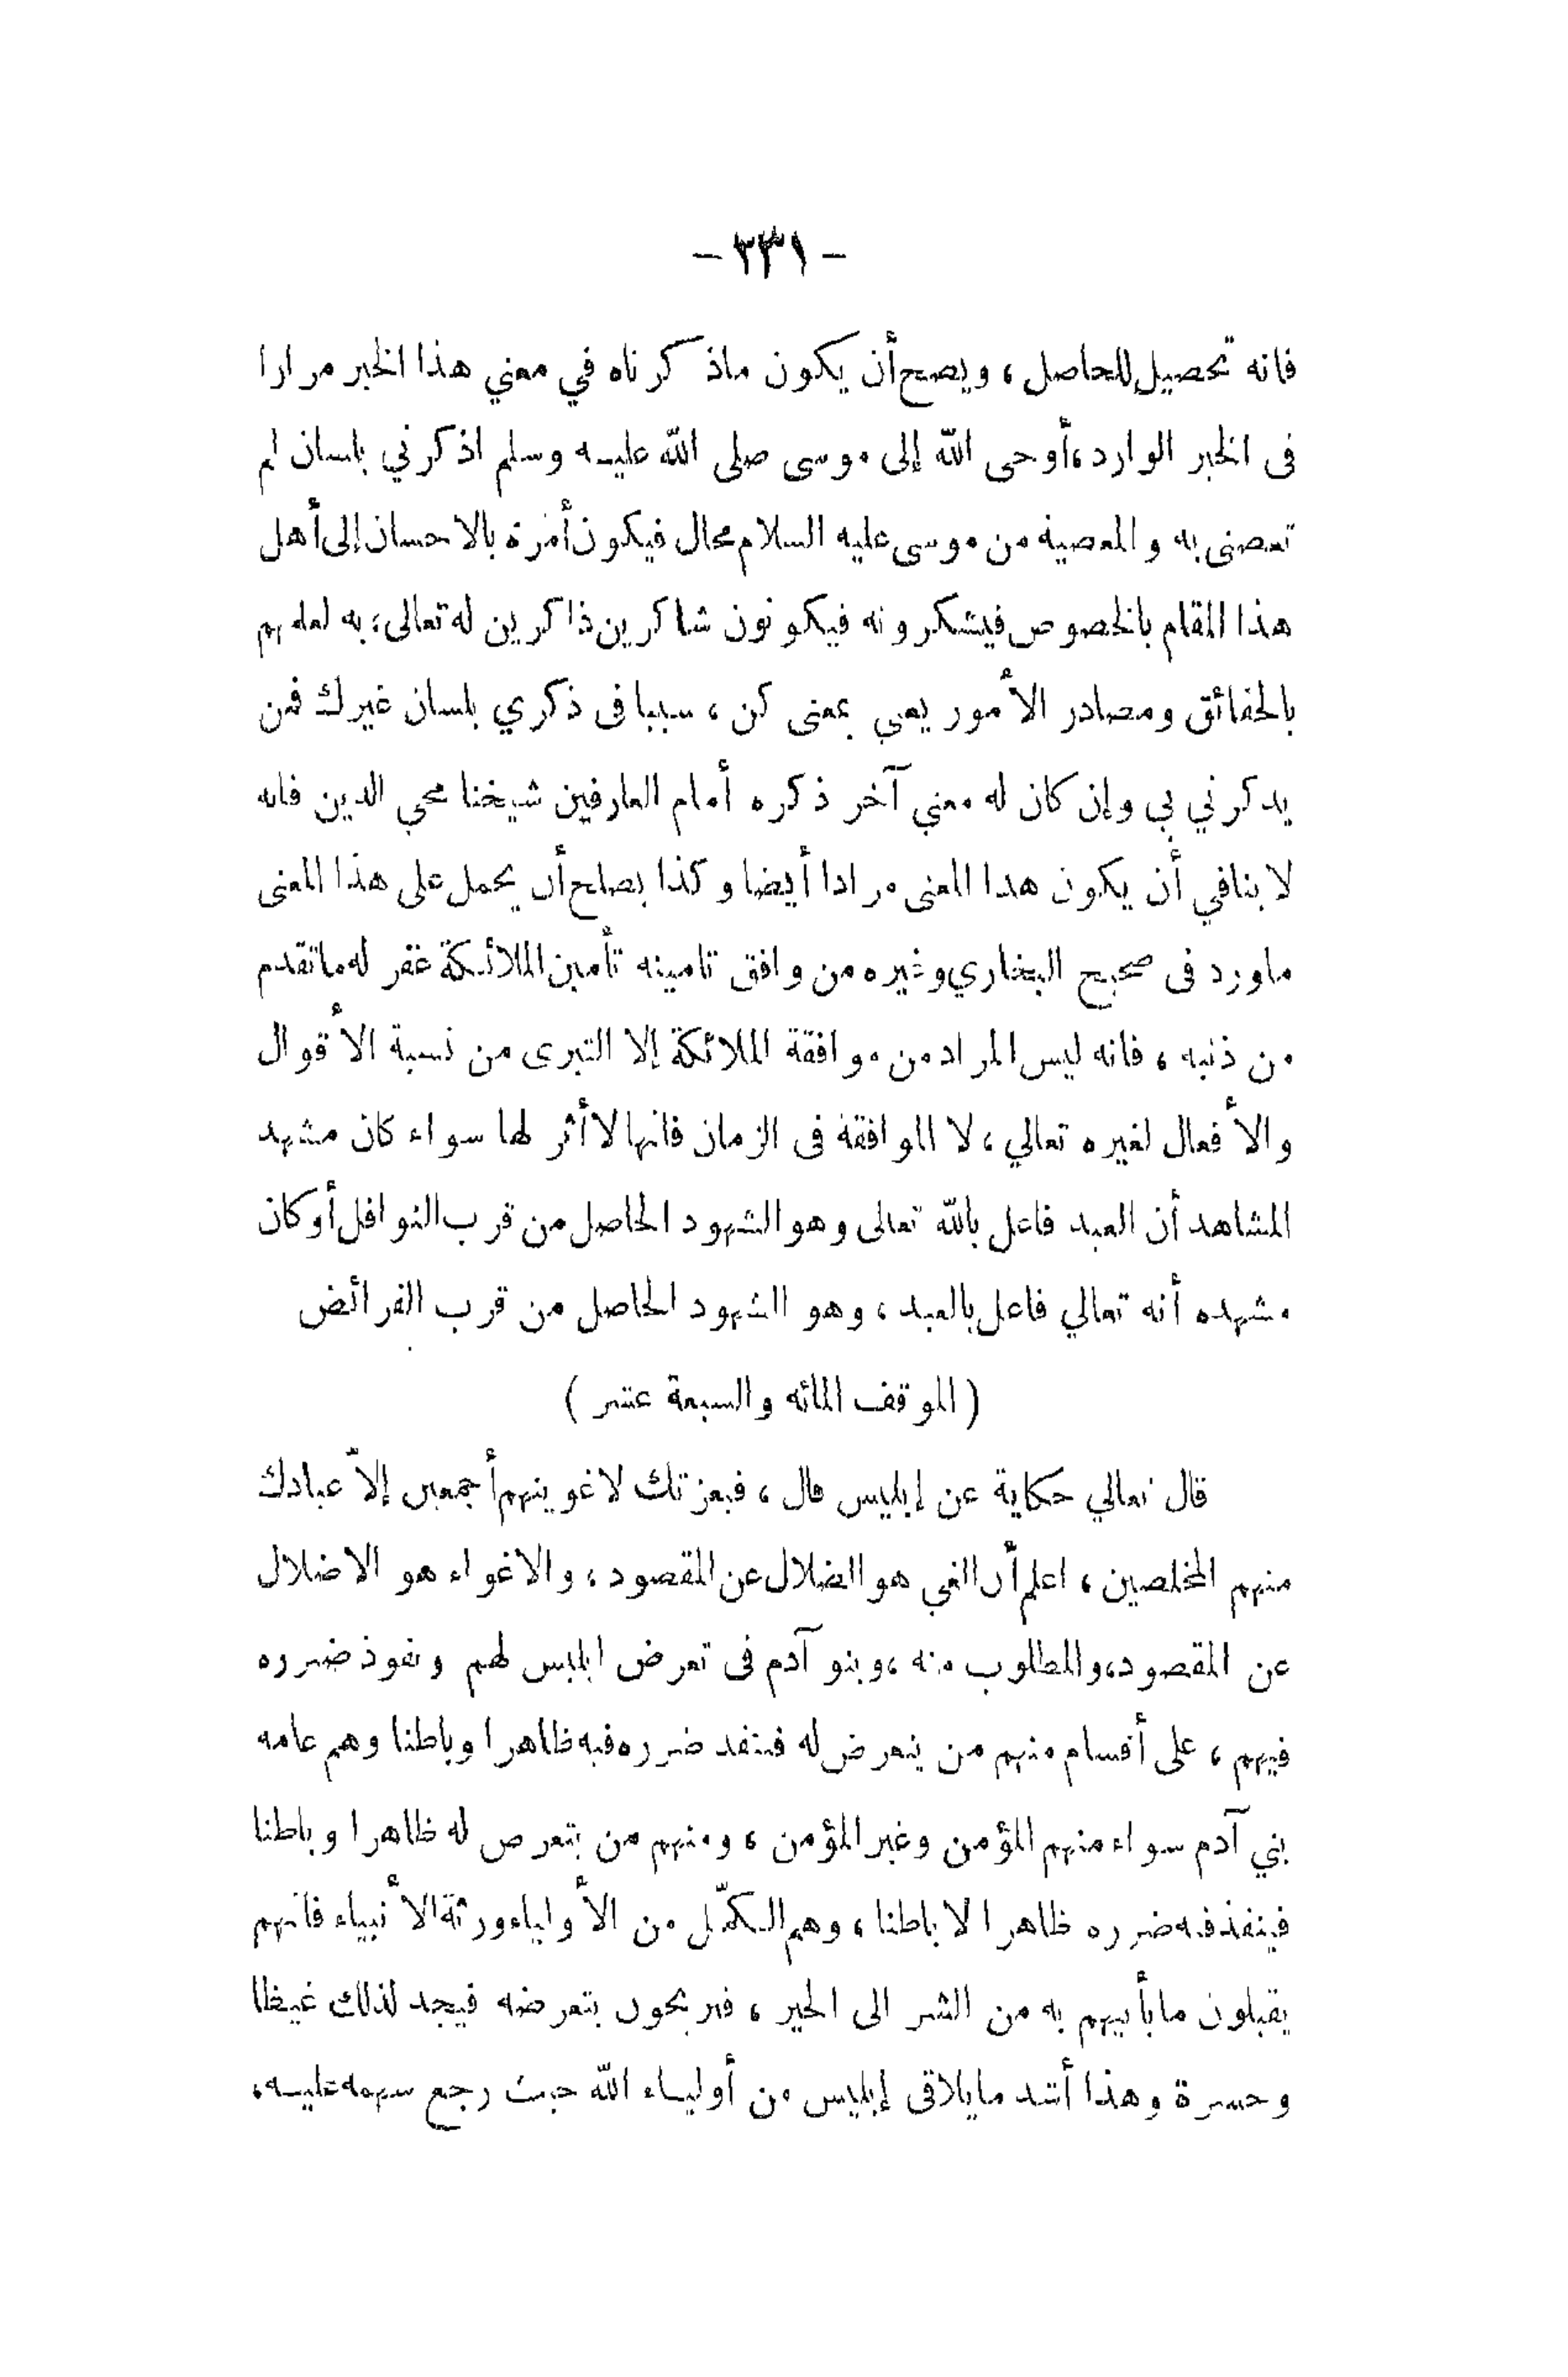 - ٣٣١ -
فانه تحصيل للحاصل، ويصح أن يكون ماذكرناه في معني هذا الخبر مرارا
فى الخبر الوارد، أوحى الله إلى موسى صلى الله عليه وسلم اذكرني بلسان لم
تعصنى به والمعصية من موسى عليه السلام محال فيكون أمره بالاحسان إلى أهل
هذا المقام بالخصوص فيشكرونه فيكونون شاكرين ذاكرين له تعالى، به لعلمهم
بالحقائق ومصادر الأمور يعني بمعنى كن، سببا فى ذكري بلسان غيرك فمن
يذكرني بي وإن كان له معني آخر ذكره أمام العارفين شيخنا محي الدين فانه
لا ينافي أن يكون هذا المعنى مرادا أيضا وكذا يصلح أن يحمل على هذا المعنى
ماورد فى صحيح البخاري وغيره من وافق تامينه تأمين الملائكة غفر له ماتقدم
من ذنبه، فانه ليس المراد من موافقة الملائكة إلا التبرى من نسبة الأقوال
والأفعال لغيره تعالي، لا الموافقة فى الزمان فانها لا أثر لها سواء كان مشهد
المشاهد أن العبد فاعل بالله تعالى وهو الشهود الحاصل من قرب النوافل أو كان
مشهده أنه تعالي فاعل بالعبد، وهو الشهود الحاصل من قرب الفرائض
( الموقف المائه والسبعة عشر )
قال تعالي حكاية عن إبليس قال، فبعزتك لاغوينهم أجمعين إلاّ عبادك
منهم المخلصين، اعلم أن الغي هو الضلال عن المقصود، والاغواء هو الاضلال
عن المقصود، والمطلوب منه، وبنو آدم فى تعرض ابليس لهم ونفوذ ضرره
فيهم، على أقسام منهم من يتعرض له فينفذ ضرره فيه ظاهرا وباطنا وهم عامه
بني آدم سواء منهم المؤمن وغير المؤمن، ومنهم من يتعرض له ظاهرا وباطنا
فينفذ فيه ضرره ظاهرا لا باطنا، وهم الكمّل من الأولياء ورثة الأنبياء فانهم
يقبلون ما يأتيهم به من الشر الى الخير، فيربحون بتعرضه فيجد لذلك غيظا
وحسرة وهذا أشد مايلاقى إبليس من أولياء الله حيث رجع سهمه عليه،